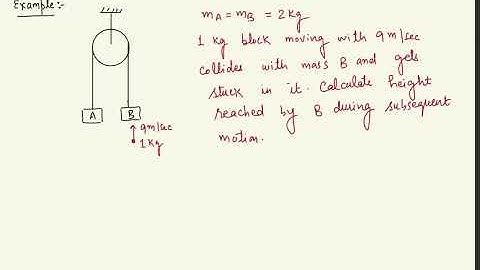 Example:-
m_A = m_B = 2 kg
1 kg block moving with 9 m/sec
collides with mass B and gets
stuck in it. Calculate height
reached by B during subsequent
motion.
A
B
9m/sec
1 kg